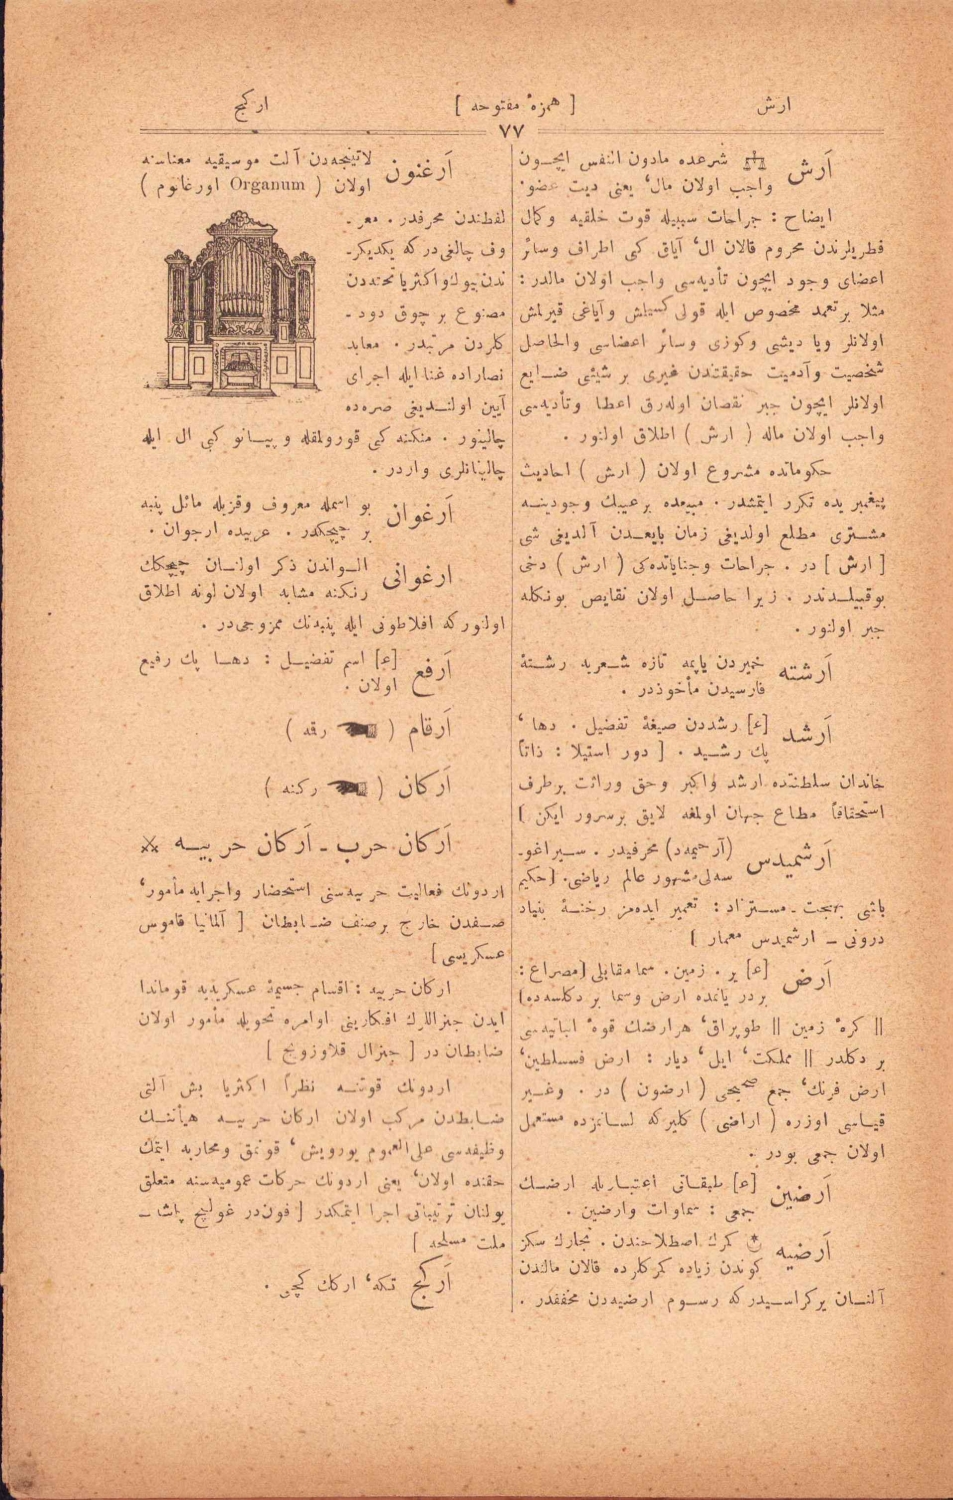 ارش
[ همزهٔ مفتوحه ]
اركج
٧٧
اَرش شرعده مادون النفس ایچون
واجب اولان مال، یعنی دیت عضو.
ایضاح : جراحات سببیله قوت خلقیه وكمال
فطریلرندن محروم قالان ال، آیاق كبی اطراف وسائر
اعضای وجود ایچون تأدیه‌سی واجب اولان مالدر :
مثلا بر تعمد مخصوص ایله قولی كسیلمش وآیاغی قیرلمش
اولانلر ویا دیشی وكوزی وسائر اعضاسی والحاصل
شخصیت وآدمیت حقیقتندن غیری بر شیئی ضایع
اولانلر ایچون جبر نقصان اوله‌رق اعطا وتأدیه‌سی
واجب اولان ماله ( ارش ) اطلاق اولنور .
حكوماتده مشروع اولان ( ارش ) احادیث
پیغمبریده تكرر ایتمشدر . مبیعده بر عیبك وجودینه
مشتری مطلع اولدیغی زمان بایعدن آلدیغی شی
[ ارش ] در . جراحات وجنایاتده‌كی ( ارش ) دخی
بوقبیلدندر . زیرا حاصل اولان نقایص بونكله
جبر اولنور .
اَرشته خمیردن یاپمه تازه شعریه رشتهٔ
فارسیدن مأخوذدر .
اَرشد [ع] رشددن صیغهٔ تفضیل . دها ،
پك رشید . [ دور استیلا : ذاتاً
خاندان سلطنتده ارشد واكبر وحق وراثت برطرف
استحقاقاً مطاع جهان اولمغه لایق برسرور ایكن ]
اَرشمیدس (آرحیمه‌د) محرفیدر . سیراغو-
سه‌لی مشهور عالم ریاضی. [حكیم
باشی بهجت - مستزاد : تعمیر ایده‌مز رخنهٔ بنیاد
درونی - ارشمیدس معمار ]
اَرض [ع] یر . زمین . سما مقابلی [مصراع :
بردر یاننده ارض وسما بر دكلسه‌ده]
|| كرهٔ زمین || طوپراق، هر ارضك قوهٔ انباتیه‌سی
بر دكلدر || مملكت، ایل، دیار : ارض فلسطین،
ارض فرنك، جمع صحیحی ( ارضون ) در . وغیر
قیاسی اوزره ( اراضی ) كلیركه لسانمزده مستعمل
اولان جمعی بودر .
اَرضین [ع] طبقاتی اعتباریله ارضك
جمعی : سماوات وارضین .
اَرضیه كمرك اصطلاحندن . تجارك سكز
كوندن زیاده كمركلرده قالان مالندن
آلنان یر كراسیدركه رسوم ارضیه‌دن مخففدر .
اَرغنون لاتینجه‌دن آلت موسیقیه معناسنه
اولان ( Organum اورغانوم )
لفظندن محرفدر . معر-
وف چالغی‌در كه یكدیكر-
ندن بیوك واكثریا تخته‌دن
مصنوع بر چوق دود-
كلردن مرتبدر . معابد
نصاراده غنا ایله اجرای
آیین اولندیغی صره‌ده
چالینور . منكنه كبی قورولمقله وپیانو كبی ال ایله
چالینانلری واردر .
اَرغوان بو اسمله معروف وقزیله مائل پنبه
بر چیچكدر . عربیده ارجوان .
ارغوانی الواندن ذكر اولنان چیچكك
رنكنه مشابه اولان لونه اطلاق
اولنوركه افلاطونی ایله پنبه‌نك ممزوجی‌در .
اَرفع [ع] اسم تفضیل : دها پك رفیع
اولان .
اَرقام ( رقه )
اَركان ( ركنه )
اَركان حرب - اَركان حربیه
اردونك فعالیت حربیه‌سنی استحضار واجرایه مأمور،
صفدن خارج برصنف ضابطان [ آلمانیا قاموس
عسكریسی]
اركان حربیه : اقسام جسیمهٔ عسكریه‌یه قوماندا
ایدن جنراللرك افكارینی اوامره تحویله مأمور اولان
ضابطان در [ جنرال قلاوزویچ ]
اردونك قوتنه نظراً اكثریا بش آلتی
ضابطدن مركب اولان اركان حربیه هیأتنك
وظیفه‌سی علی‌العموم یورویش ، قونمق ومحاربه ایتمك
حقنده اولان، یعنی اردونك حركات عمومیه‌سنه متعلق
بولنان ترتیباتی اجرا ایتمكدر [ فون‌در غولچ پاشا -
ملت مسلحه ]
اَركج تكه، اركك كچی .